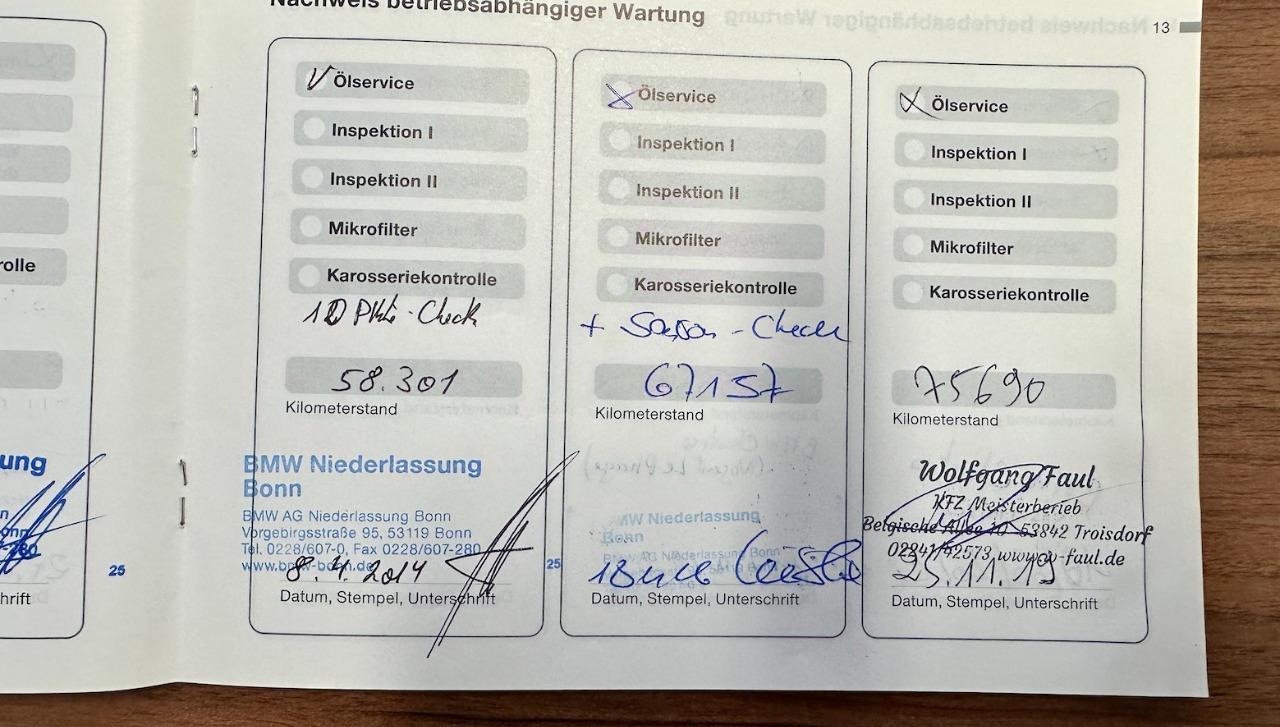 Nachweis betriebsabhängiger Wartung
13
rolle
ung
25
hrift
Ölservice
Inspektion I
Inspektion II
Mikrofilter
Karosseriekontrolle
10 Pkte-Check
58.301
Kilometerstand
BMW Niederlassung
Bonn
BMW AG Niederlassung Bonn
Vorgebirgsstraße 95, 53119 Bonn
Tel. 0228/607-0, Fax 0228/607-280
www.bmw-bonn.de
8.4.2014
25
Datum, Stempel, Unterschrift
Ölservice
Inspektion I
Inspektion II
Mikrofilter
Karosseriekontrolle
+ Saison-Check
67157
Kilometerstand
BMW Niederlassung
Bonn
BMW AG Niederlassung Bonn
Datum, Stempel, Unterschrift
Ölservice
Inspektion I
Inspektion II
Mikrofilter
Karosseriekontrolle
75690
Kilometerstand
Wolfgang Faul
KFZ Meisterberieb
Belgische Allee 10 53842 Troisdorf
02241/42573,www.w-faul.de
25.11.15
Datum, Stempel, Unterschrift